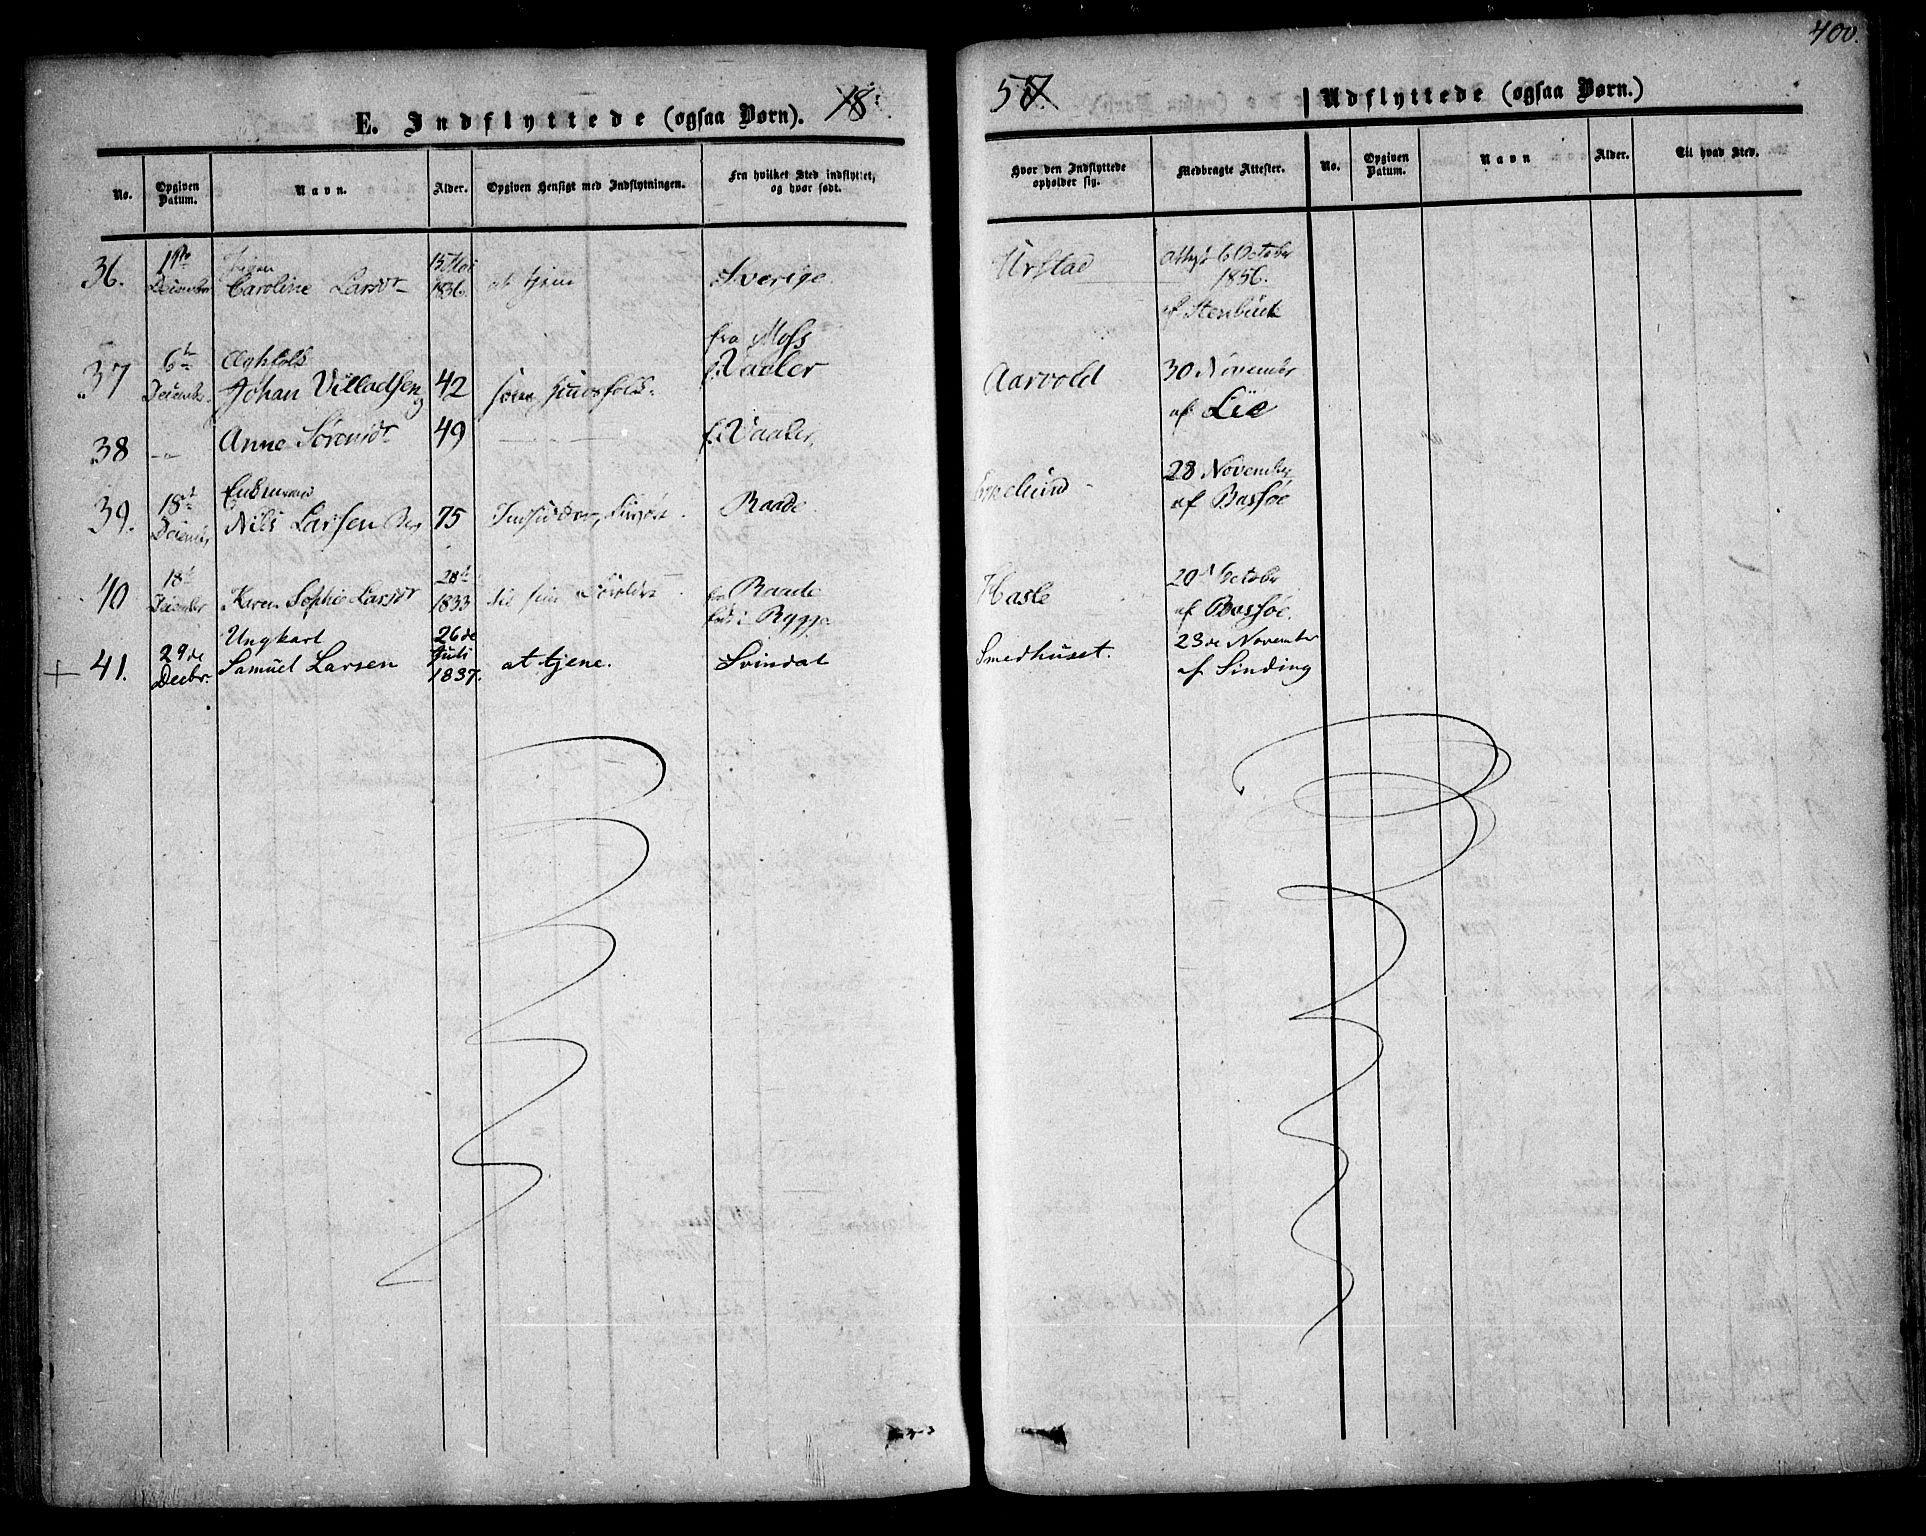 400.
E. Indflyttede (ogsaa Børn). 18
57 Udflyttede (ogsaa Børn.)
No. Opgiven Datum. Navn. Alder. Opgiven Hensigt med Indflytningen. Fra hvilket Sted indflyttet, og hvor født. Hvor den Indflyttede opholder sig. Medbragte Attester. No. Opgiven Datum. Navn Alder. Til hvad Sted.
36. 1ste December Pigen Caroline Larsdt 15 Mai 1836. at tjene Sverige Urstad 6 October 1856. af Stenbuck
37 6te December. Ægtfolk Johan Villadsen og 42 som Huusfolk. fra Moss f. Vaaler Aarvold 30 November af Lie
38 -"- Anne Sørensdt 49 f. Vaaler.
39. 18de Nils Larsen 75 Raade 28 November af Bassøe
40 18de December Karen Sophie Larsdt 1833 til sine Forældre fra Raade født i Rygge Hasle 20de October af Bassøe.
41. 29de Decbr. Ungkarl Samuel Larsen 26de Juli 1837. at tjene. Svindal Smedhuset. 23de November af Sinding